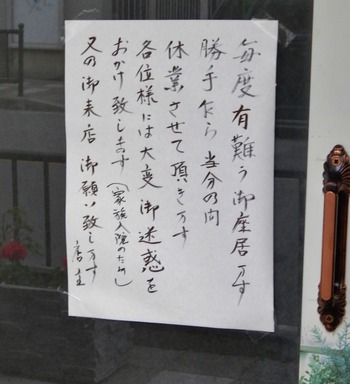 毎度有難う御座居ます
勝手乍ら当分の間
休業させて頂きます
各位様には大変御迷惑を
おかけ致します(家族入院のため)
又の御来店御願い致します
店主